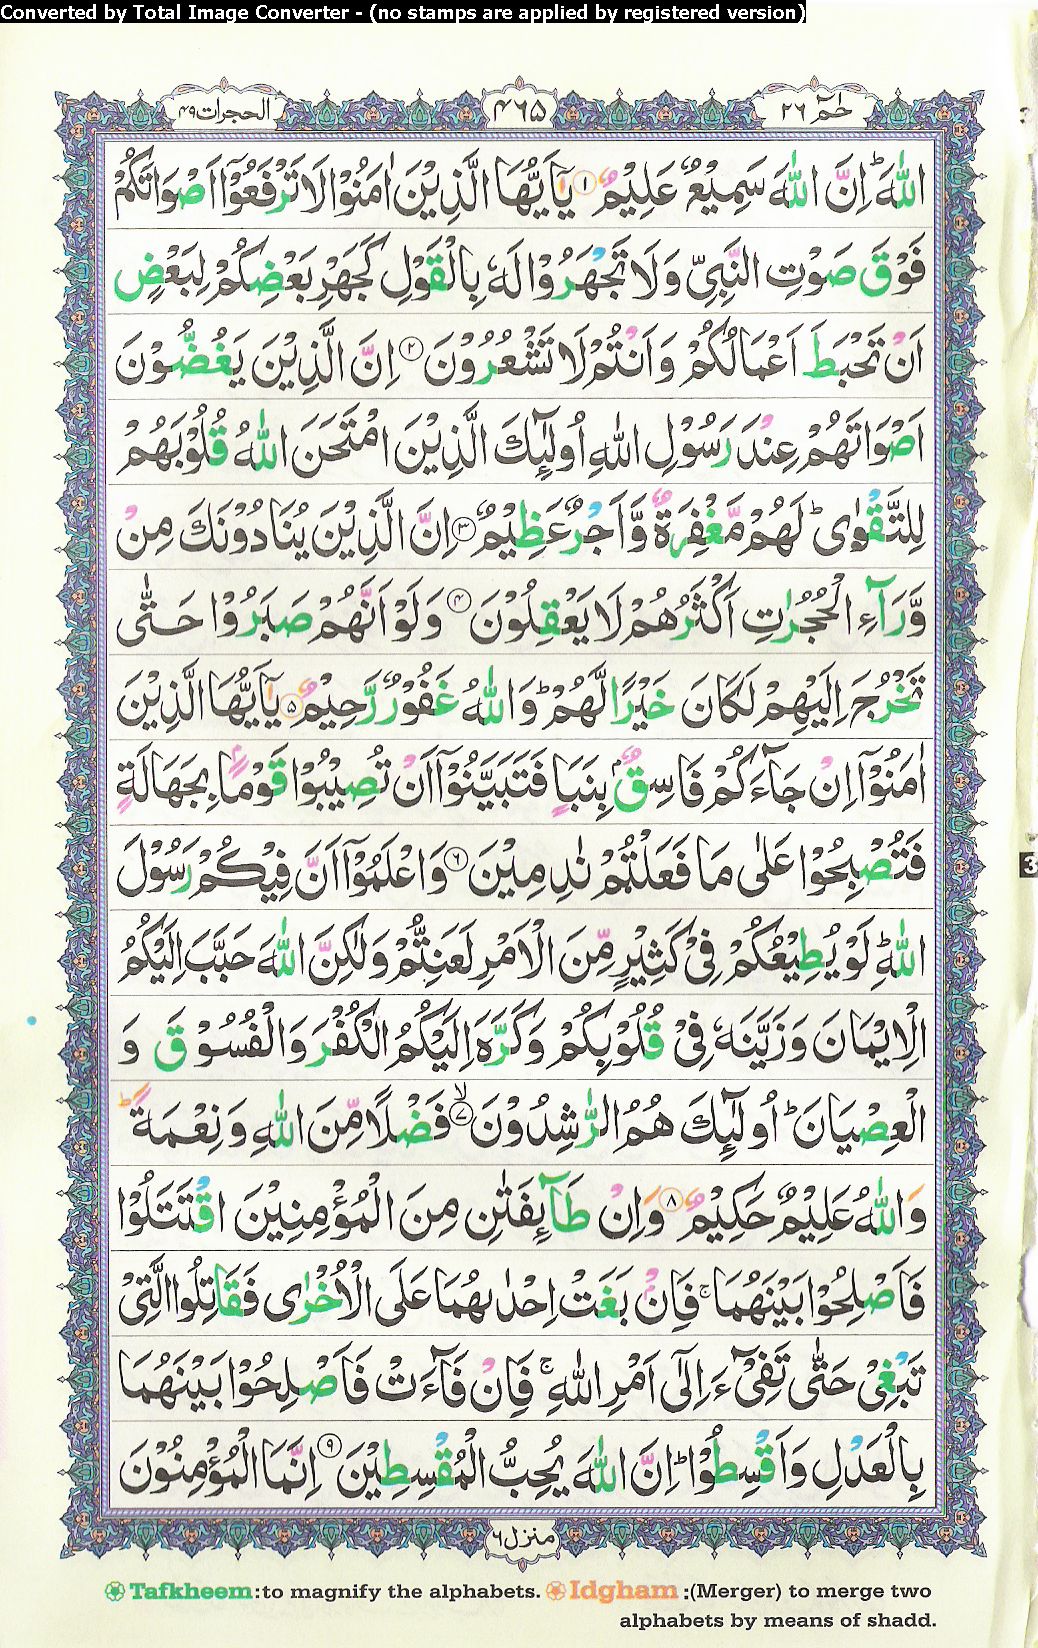 Converted by Total Image Converter - (no stamps are applied by registered version)
حٰمٓ ٢٦
٤٦٥
الحجرات ٤٩
اللّٰهَ ؕ اِنَّ اللّٰهَ سَمِيْعٌ عَلِيْمٌ ۝۱ يٰۤاَيُّهَا الَّذِيْنَ اٰمَنُوْا لَا تَرْفَعُوْۤا اَصْوَاتَكُمْ
فَوْقَ صَوْتِ النَّبِيِّ وَلَا تَجْهَرُوْا لَهٗ بِالْقَوْلِ كَجَهْرِ بَعْضِكُمْ لِبَعْضٍ
اَنْ تَحْبَطَ اَعْمَالُكُمْ وَاَنْتُمْ لَا تَشْعُرُوْنَ ۝۲ اِنَّ الَّذِيْنَ يَغُضُّوْنَ
اَصْوَاتَهُمْ عِنْدَ رَسُوْلِ اللّٰهِ اُولٰٓئِكَ الَّذِيْنَ امْتَحَنَ اللّٰهُ قُلُوْبَهُمْ
لِلتَّقْوٰى ؕ لَهُمْ مَّغْفِرَةٌ وَّاَجْرٌ عَظِيْمٌ ۝۳ اِنَّ الَّذِيْنَ يُنَادُوْنَكَ مِنْ
وَّرَآءِ الْحُجُرٰتِ اَكْثَرُهُمْ لَا يَعْقِلُوْنَ ۝۴ وَلَوْ اَنَّهُمْ صَبَرُوْا حَتّٰى
تَخْرُجَ اِلَيْهِمْ لَكَانَ خَيْرًا لَّهُمْ ؕ وَاللّٰهُ غَفُوْرٌ رَّحِيْمٌ ۝۵ يٰۤاَيُّهَا الَّذِيْنَ
اٰمَنُوْۤا اِنْ جَآءَكُمْ فَاسِقٌۢ بِنَبَاٍ فَتَبَيَّنُوْۤا اَنْ تُصِيْبُوْا قَوْمًۢا بِجَهَالَةٍ
فَتُصْبِحُوْا عَلٰى مَا فَعَلْتُمْ نٰدِمِيْنَ ۝۶ وَاعْلَمُوْۤا اَنَّ فِيْكُمْ رَسُوْلَ
اللّٰهِ ؕ لَوْ يُطِيْعُكُمْ فِيْ كَثِيْرٍ مِّنَ الْاَمْرِ لَعَنِتُّمْ وَلٰكِنَّ اللّٰهَ حَبَّبَ اِلَيْكُمُ
الْاِيْمَانَ وَزَيَّنَهٗ فِيْ قُلُوْبِكُمْ وَكَرَّهَ اِلَيْكُمُ الْكُفْرَ وَالْفُسُوْقَ وَ
الْعِصْيَانَ ؕ اُولٰٓئِكَ هُمُ الرّٰشِدُوْنَ ۝۷ۙ فَضْلًا مِّنَ اللّٰهِ وَنِعْمَةً ؕ
وَاللّٰهُ عَلِيْمٌ حَكِيْمٌ ۝۸ وَاِنْ طَآئِفَتٰنِ مِنَ الْمُؤْمِنِيْنَ اقْتَتَلُوْا
فَاَصْلِحُوْا بَيْنَهُمَا ۚ فَاِنْۢ بَغَتْ اِحْدٰىهُمَا عَلَى الْاُخْرٰى فَقَاتِلُوا الَّتِيْ
تَبْغِيْ حَتّٰى تَفِيْٓءَ اِلٰٓى اَمْرِ اللّٰهِ ۚ فَاِنْ فَآءَتْ فَاَصْلِحُوْا بَيْنَهُمَا
بِالْعَدْلِ وَاَقْسِطُوْا ؕ اِنَّ اللّٰهَ يُحِبُّ الْمُقْسِطِيْنَ ۝۹ اِنَّمَا الْمُؤْمِنُوْنَ
منزل ٦
Tafkheem:to magnify the alphabets. Idgham :(Merger) to merge two
alphabets by means of shadd.
3